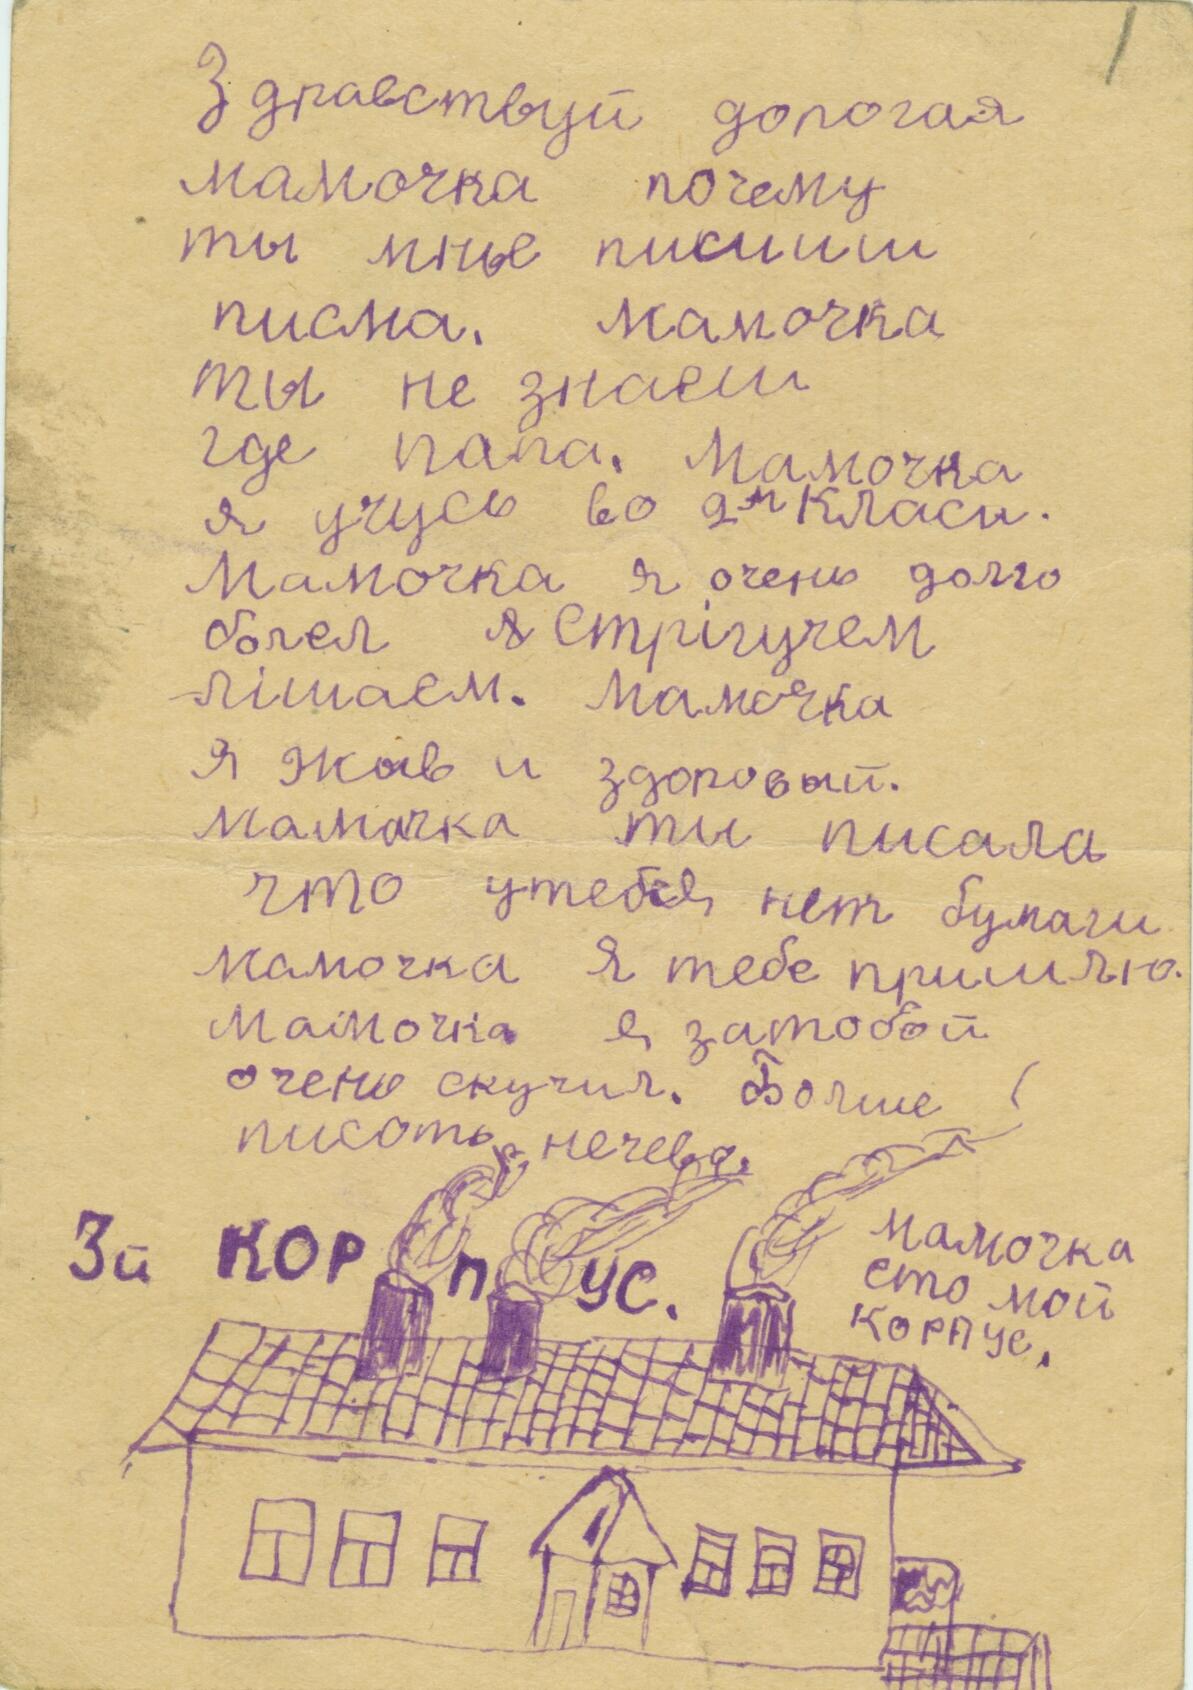 Здравствуй дорогая
мамочка почему
ты мнье писиш
писма. мамочка
ты не знаеш
где папа. Мамочка
я учусь во 2м Класи.
Мамочка я очень долго
болел Стрігучем
лішаем. Мамочка
я жыв и здоровый.
Мамочка ты писала
что утебя нет бумаги
мамочка я тебе пришлю.
Мамочка я затобой
очень скучил. Болше
писать нечево.
3й КОРПУС.
мамочка
ето мой
корпус.